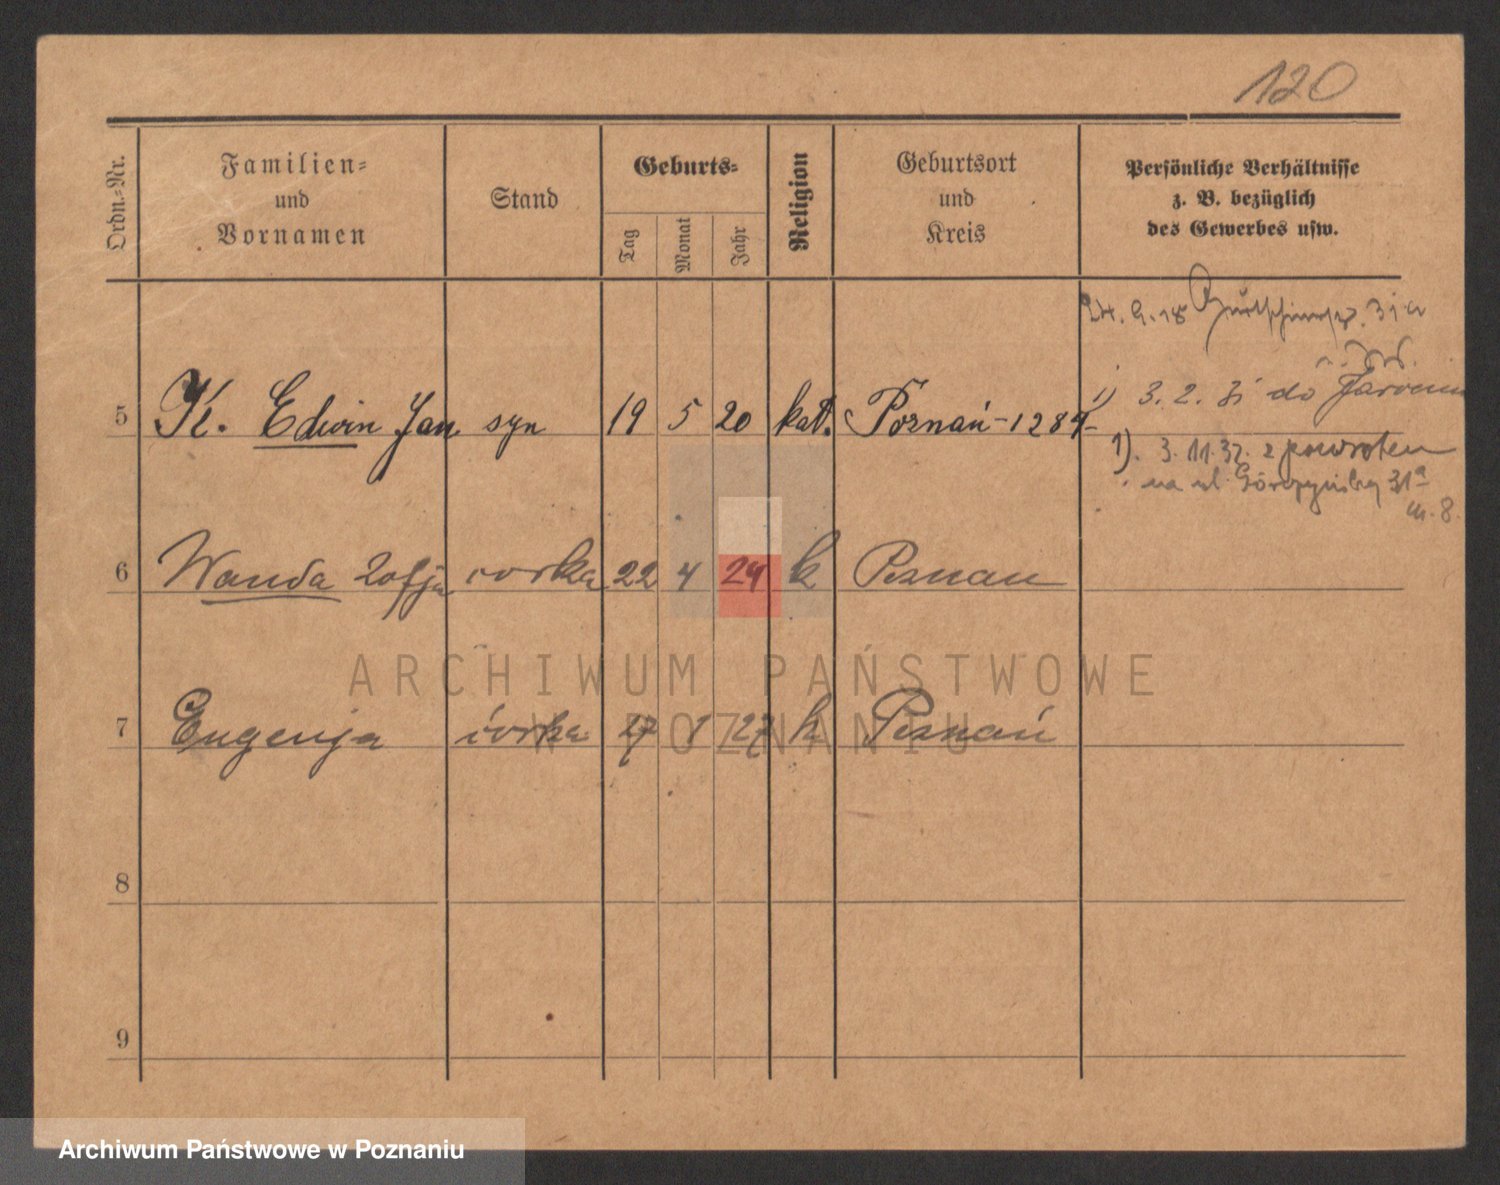 120
Ordn.-Nr.
Familien-
und
Vornamen
Stand
Geburts-
Tag
Monat
Jahr
Religion
Geburtsort
und
Kreis
Persönliche Verhältnisse
z. B. bezüglich
des Gewerbes usw.
24. 9. 18 31a
1) 3. 2. 31 do
5 K. Edwin Jan syn 19 5 20 kat. Poznań - 1284
1). 3. 11. 32. z powrotem
na ul. Górczyńską 31a
m. 8.
6 Wanda Zofja córka 22 4 24 k Poznań
ARCHIWUM PAŃSTWOWE
W POZNANIU
7 Eugenja córka 27 1 27 k Poznań
8
9
Archiwum Państwowe w Poznaniu